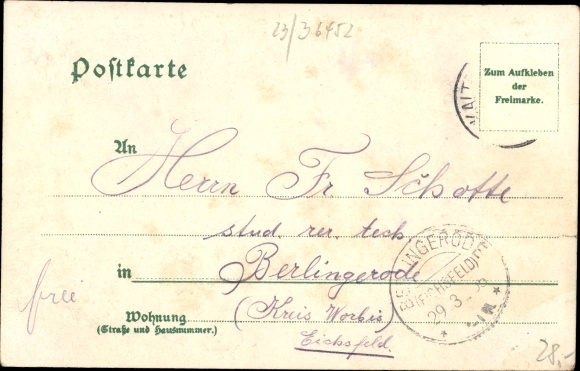 23/36452
Postkarte
Zum Aufkleben
der
Freimarke.
An
Herrn Fr Schotte
stud. rer. tech.
in Berlingerode
(Kreis Worbis)
Eichsfeld.
frei
Wohnung
(Straße und Hausnummer.)
BERLINGERODE
(EICHSFELD)
29.3.
28,-